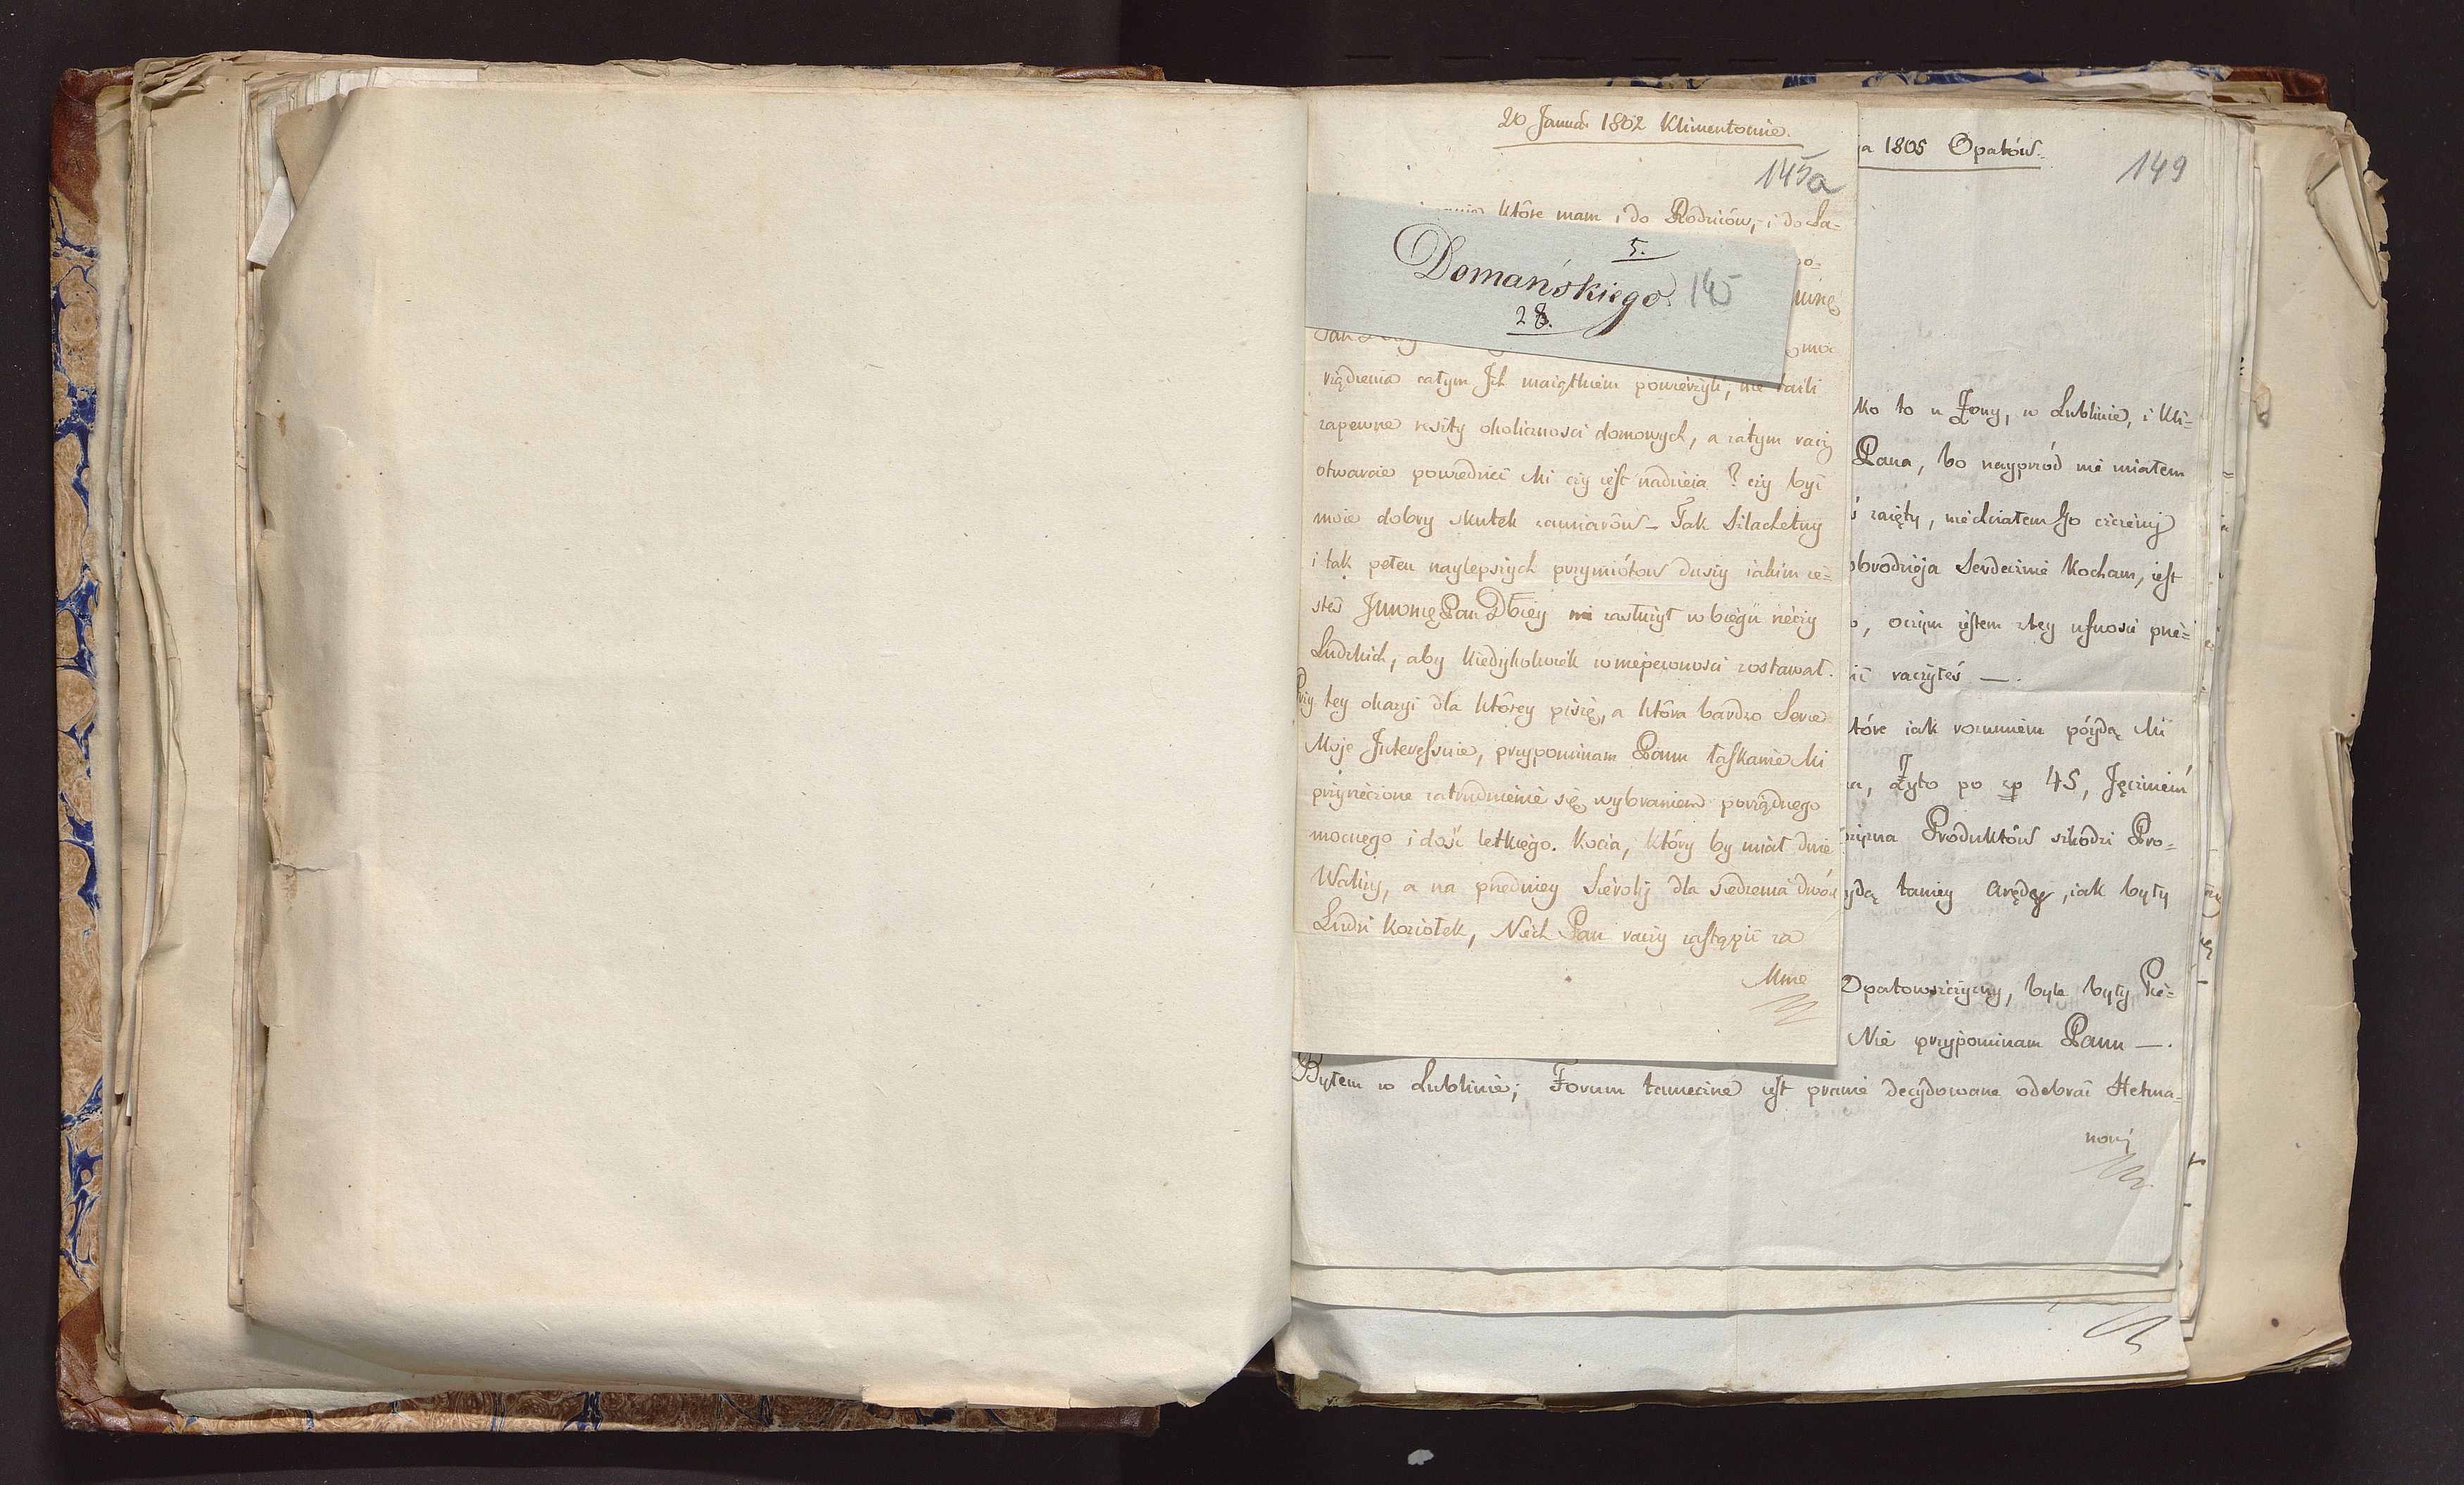 20 Januar 1802 Klimentowie.
145a
które mam i do Rodziców, i do Sa-
5.
Domańskiego. 145
28.
rządzenia całym Ich maiątkiem powierzyli, nie taili
zapewne reszty okolicznosci domowych, a zatym raczy
otwarcie powiedzieć Mi czy iest nadzieia? czy być
może dobry skutek zamiarów – Tak Szlachetny
i tak pełen naylepszych przymiótow duszy iakim ie=
steś JmwnięPan Dbiey zasłużył w biegu rzéczy
Ludzkich, aby kiedykolwiek w niepewnosci zostawał.
Przy tey okazyi dla którey piszę, a która bardzo Serce
Moje Interessuie, przypominam Panu łaskawie Mi
przyrzeczone zatrudnienie się wybraniem porządnego
mocnego i dość letkiego. Kocza, który by miał dwie
Walizy, a na przedniey Széroki dla siedzenia dwóch
Ludzi koziołek, Niech Pan raczy zastąpić za
Mnie
ja 1805 Opatów.
149
ko to u Żony, w Lublinie, i Kli=
Pana, bo nayprzód nie miałem
zaięty, niechciałem Go czczémi
obrodzieja Serdecznie Kocham, iest
, oczym iestem z tey ufnosci prze=
ić raczyłeś —.
tóre iak rozumiem póydą Mi
Żyto po zp 45, Jęczmień
Produktów szkodzi Pro=
ydą taniey Arędy, iak były
Opatowszczyzny, byle były Pie=
Nie przypominam Panu —.
Byłem w Lublinie; Forum tameczne iest prawie decydowane odebrać Hetma=
nowi